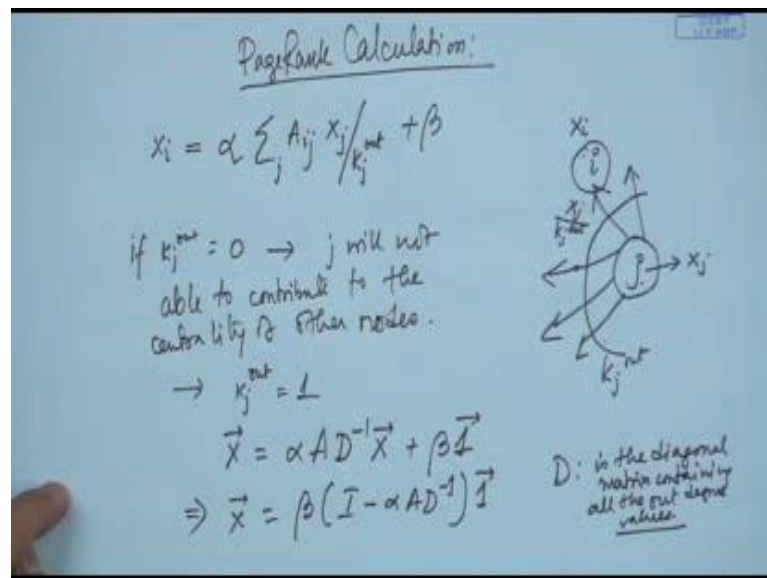 PageRank Calculation:
xi = α Σj Aij xj/kj^out + β
if kj^out = 0 → j will not
able to contribute to the
centrality of other nodes.
→ kj^out = 1
x⃗ = αAD⁻¹x⃗ + β1⃗
⇒ x⃗ = β(I - αAD⁻¹)1⃗
xi
i
xj/kj^out
j
xj
kj^out
D: is the diagonal
matrix containing
all the out degree
values.